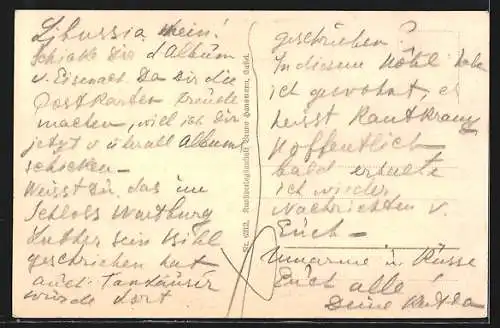 Libussia mein!
Schicke Dir d Album
v. Eisenach Da Dir die
Postkarten Freude
machen, will ich Dir
jetzt v überall Album
schicken –
Weisst Du, das im
Schloss Wartburg
Luther sein Bibl
geschrieben hat
auch Tanhäuser
wurde dort
geschrieben?
In diesem Hotel habe
ich gewohnt, es
heisst Rautkranz
Hoffentlich
bald erhalte
ich wieder
Nachrichten v.
Euch –
Umarme u. Küsse
Euch alle!
Deine
Nr. Kunstverlagsanstalt Bruno Hansmann, Cassel.